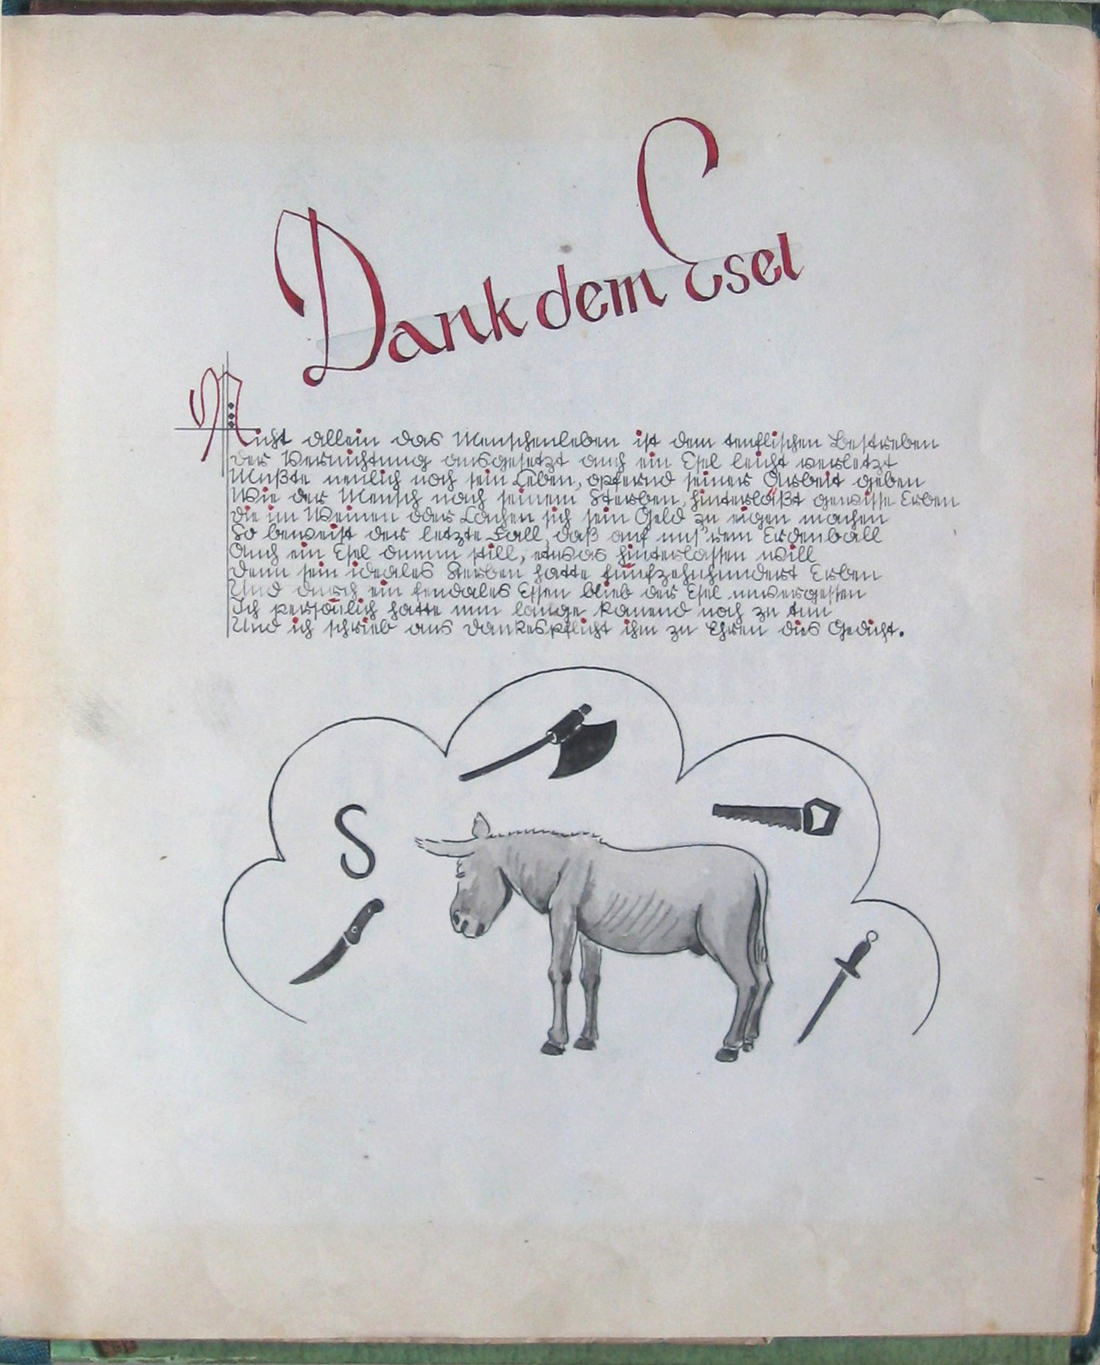 Dank dem Esel
Nicht allein das Menschenleben ist dem teuflischen Bestreben
der Vernichtung ausgesetzt auch ein Esel leicht verletzt
Mußte neulich noch sein Leben, opfernd seiner Arbeit geben
Wie der Mensch nach seinem Sterben, hinterläßt gewisse Erben
die im Weinen oder Lachen sich sein Geld zu eigen machen
So beweist der letzte Fall, daß auf uns'rem Erdenball
Auch ein Esel dumm still, etwas hinterlassen will
Denn sein ideales Sterben hatte fünfzehnhundert Erben
Und durch ein feudales Essen blieb der Esel unvergessen
Ich persönlich hatte nun lange kauend noch zu tun
Und ich schrieb aus Dankespflicht ihm zu Ehren dies Gedicht.